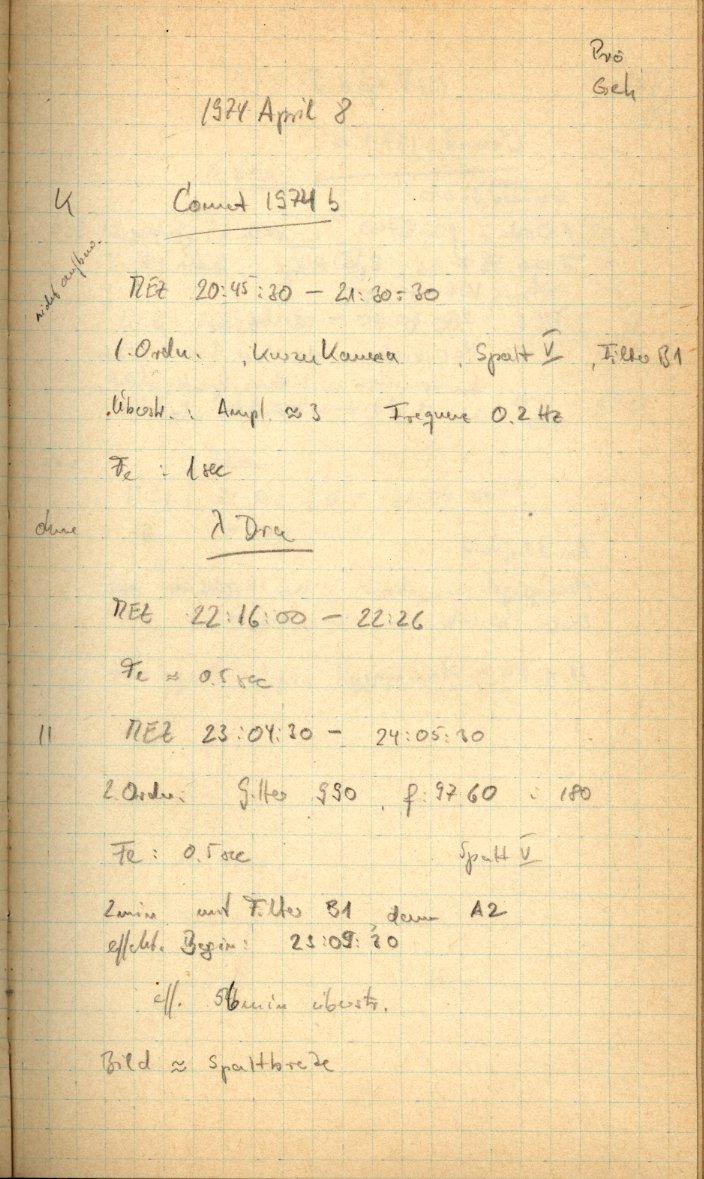 Prö
Geh
1974 April 8
K Comet 1974 b
nicht aufbew.
MEZ 20:45:30 – 21:30:30
1. Ordn. , Kurze Kamera , Spalt V , Filter B1
Überstr. : Ampl. ≈ 3 Frequenz 0.2 Hz
Fe : 1 sec
ohne λ Dra
MEZ 22:16:00 – 22:26
Fe ≈ 0.5 sec
II MEZ 23:04:30 – 24:05:30
2. Ordn: Gitter 990 , f: 9760 : 180
Fe : 0.5 sec Spalt V
2 min mit Filter B1, dann A2
effekt. Begin: 23:09:30
eff. 56 min überstr.
Bild ≈ Spaltbreite